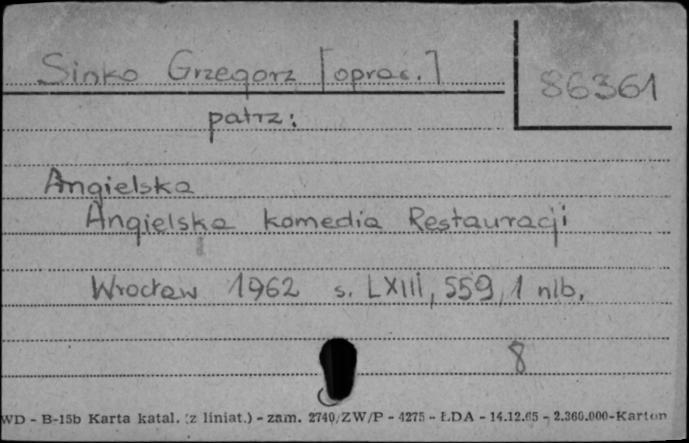 Sinko Grzegorz [oprac.]
86361
patrz:
Angielska
Angielska komedia Restauracji
Wrocław 1962 s. LXIII, 559, 1 nlb.
8
WD - B-15b Karta katal. (z liniat.) - zam. 2740/ZW/P - 4275 - ŁDA - 14.12.65 - 2.360.000-Karton